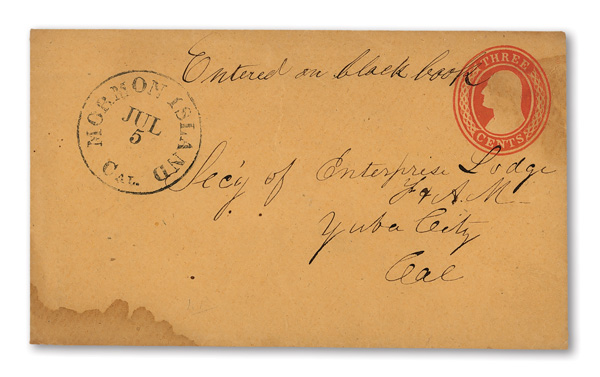 Entered on black book
THREE
CENTS
MORMON ISLAND
JUL
5
CAL.
Sec'y of Enterprise Lodge
F & A. M
Yuba City
Cal